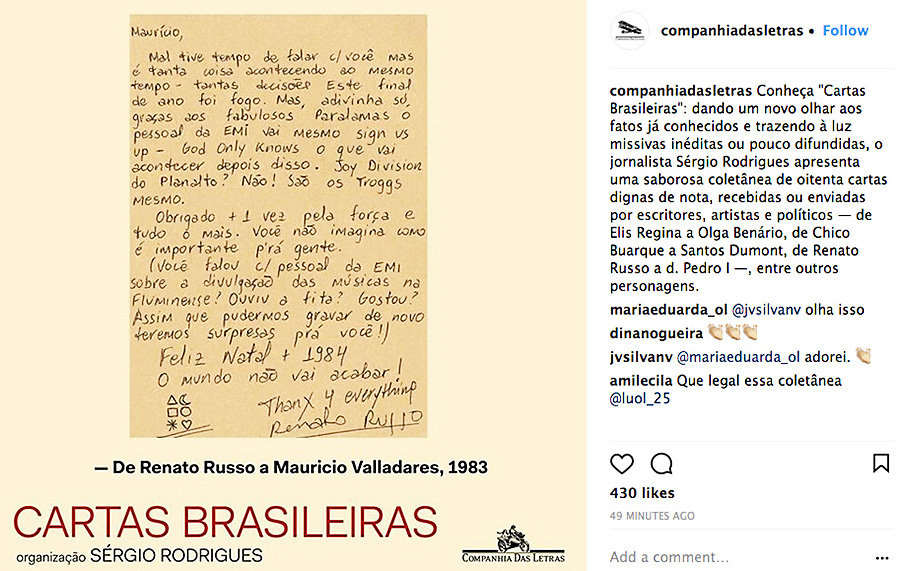 Maurício,
Mal tive tempo de falar c/ você mas
é tanta coisa acontecendo ao mesmo
tempo - tantas decisões Este final
de ano foi fogo. Mas, adivinha só,
graças aos fabulosos Paralamas o
pessoal da EMI vai mesmo sign us
up - God Only Knows o que vai
acontecer depois disso. Joy Division
do Planalto? Não! São os Troggs
mesmo.
Obrigado + 1 vez pela força e
tudo o mais. Você não imagina como
é importante p'rá gente.
(Você falou c/ pessoal da EMI
sobre a divulgação das músicas na
Fluminense? Ouviu a fita? Gostou?
Assim que pudermos gravar de novo
teremos surpresas prá você!)
Feliz Natal + 1984
O mundo não vai acabar!
Thanx 4 everything
Renato Russo
— De Renato Russo a Mauricio Valladares, 1983
CARTAS BRASILEIRAS
organização SÉRGIO RODRIGUES
COMPANHIA DAS LETRAS
companhiadasletras • Follow
companhiadasletras Conheça "Cartas
Brasileiras": dando um novo olhar aos
fatos já conhecidos e trazendo à luz
missivas inéditas ou pouco difundidas, o
jornalista Sérgio Rodrigues apresenta
uma saborosa coletânea de oitenta cartas
dignas de nota, recebidas ou enviadas
por escritores, artistas e políticos — de
Elis Regina a Olga Benário, de Chico
Buarque a Santos Dumont, de Renato
Russo a d. Pedro I —, entre outros
personagens.
mariaeduarda_ol @jvsilvanv olha isso
dinanogueira 👏🏻👏🏻👏🏻
jvsilvanv @mariaeduarda_ol adorei. 👏🏻
amilecila Que legal essa coletânea
@luol_25
430 likes
49 MINUTES AGO
Add a comment...